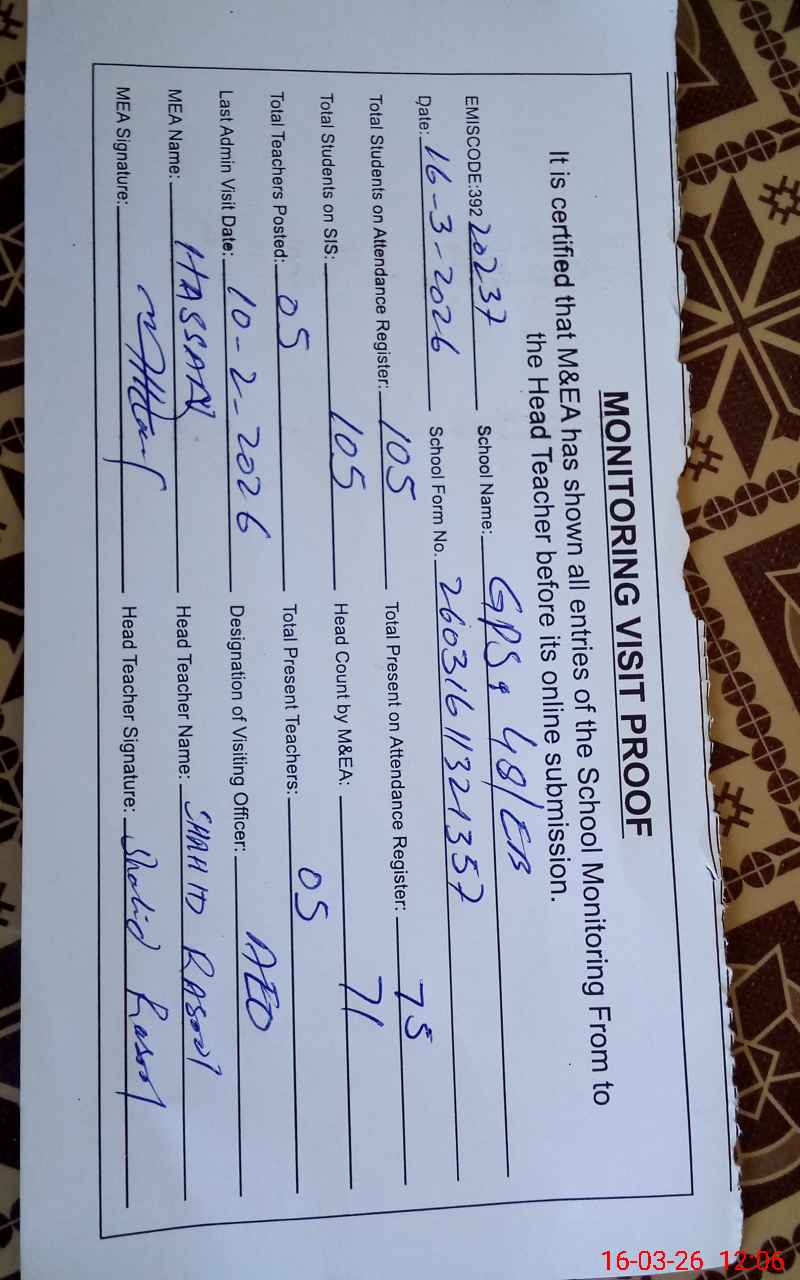 MONITORING VISIT PROOF
It is certified that M&EA has shown all entries of the School Monitoring From to
the Head Teacher before its online submission.
EMISCODE:392 20237 School Name: GPS, 48/EB
Date: 16-3-2026 School Form No. 26031611321357
Total Students on Attendance Register: 105 Total Present on Attendance Register: 75
Total Students on SIS: 105 Head Count by M&EA: 71
Total Teachers Posted: 05 Total Present Teachers: 05
Last Admin Visit Date: 10-2-2026 Designation of Visiting Officer: AEO
MEA Name: HASSAN Head Teacher Name: SHAHID RASOOL
MEA Signature: Head Teacher Signature: Shahid Rasool
16-03-26 12:06